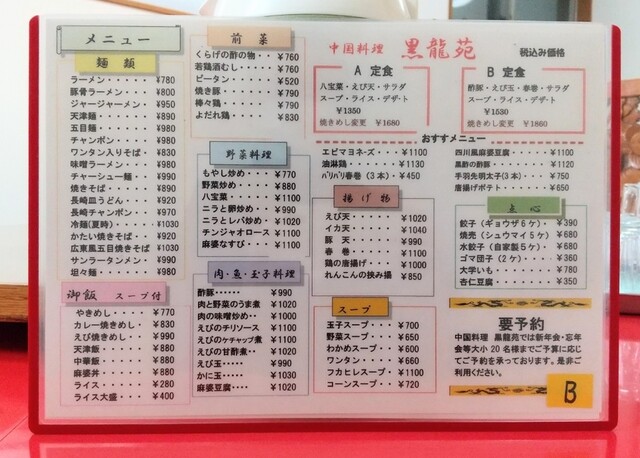 メニュー
麺類
ラーメン ¥780
豚骨ラーメン ¥880
ジャージャーメン ¥950
天津麺 ¥950
五目麺 ¥980
チャンポン ¥980
ワンタン入りそば ¥830
味噌ラーメン ¥880
チャーシュー麺 ¥990
焼きそば ¥890
長崎皿うどん ¥920
長崎チャンポン ¥970
冷麺(夏時) ¥1030
かたい焼きそば ¥920
広東風五目焼きそば ¥1030
サンラータンメン ¥990
坦々麺 ¥980
御飯 スープ付
やきめし ¥770
カレー焼きめし ¥830
えび焼きめし ¥990
天津飯 ¥880
中華飯 ¥880
麻婆丼 ¥880
ライス ¥280
ライス大盛 ¥400
前菜
くらげの酢の物 ¥760
若鶏酒むし ¥760
ピータン ¥520
焼き豚 ¥790
棒々鶏 ¥790
よだれ鶏 ¥1030
野菜料理
もやし炒め ¥770
野菜炒め ¥880
八宝菜 ¥1100
ニラと卵炒め ¥990
ニラとレバ炒め ¥1020
チンジャオロース ¥1100
麻婆なすび ¥1100
肉・魚・玉子料理
酢豚 ¥990
肉と野菜のうま煮 ¥1020
肉の味噌炒め ¥1000
えびのチリソース ¥1100
えびのケチャップ煮 ¥1100
えびの甘酢煮 ¥1020
えび玉 ¥990
かに玉 ¥1030
麻婆豆腐 ¥1020
中国料理 黒龍苑
税込み価格
A 定食
八宝菜・えび天・サラダ
スープ・ライス・デザート
¥1350
焼きめし変更 ¥1680
B 定食
酢豚・えび玉・春巻・サラダ
スープ・ライス・デザート
¥1530
焼きめし変更 ¥1860
おすすめメニュー
エビマヨネーズ ¥1100
油淋鶏 ¥1130
パリパリ春巻(3本) ¥450
四川風麻婆豆腐 ¥1100
黒酢の酢豚 ¥1120
手羽先明太子(3本) ¥750
唐揚げポテト ¥650
揚げ物
えび天 ¥1020
イカ天 ¥1040
豚天 ¥990
春巻 ¥1100
鶏の唐揚げ ¥1000
れんこんの挟み揚 ¥850
スープ
玉子スープ ¥700
野菜スープ ¥650
わかめスープ ¥600
ワンタン ¥660
フカヒレスープ ¥1100
コーンスープ ¥720
点心
餃子(ギョウザ6ケ) ¥390
焼売(シュウマイ5ケ) ¥680
水餃子(自家製5ケ) ¥680
ゴマ団子(2ケ) ¥360
大学いも ¥780
杏仁豆腐 ¥350
要予約
中国料理 黒龍苑では新年会・忘年
会等大小20名様までご予算に応じ
てご予約を承っております。是非ご
利用ください。
B